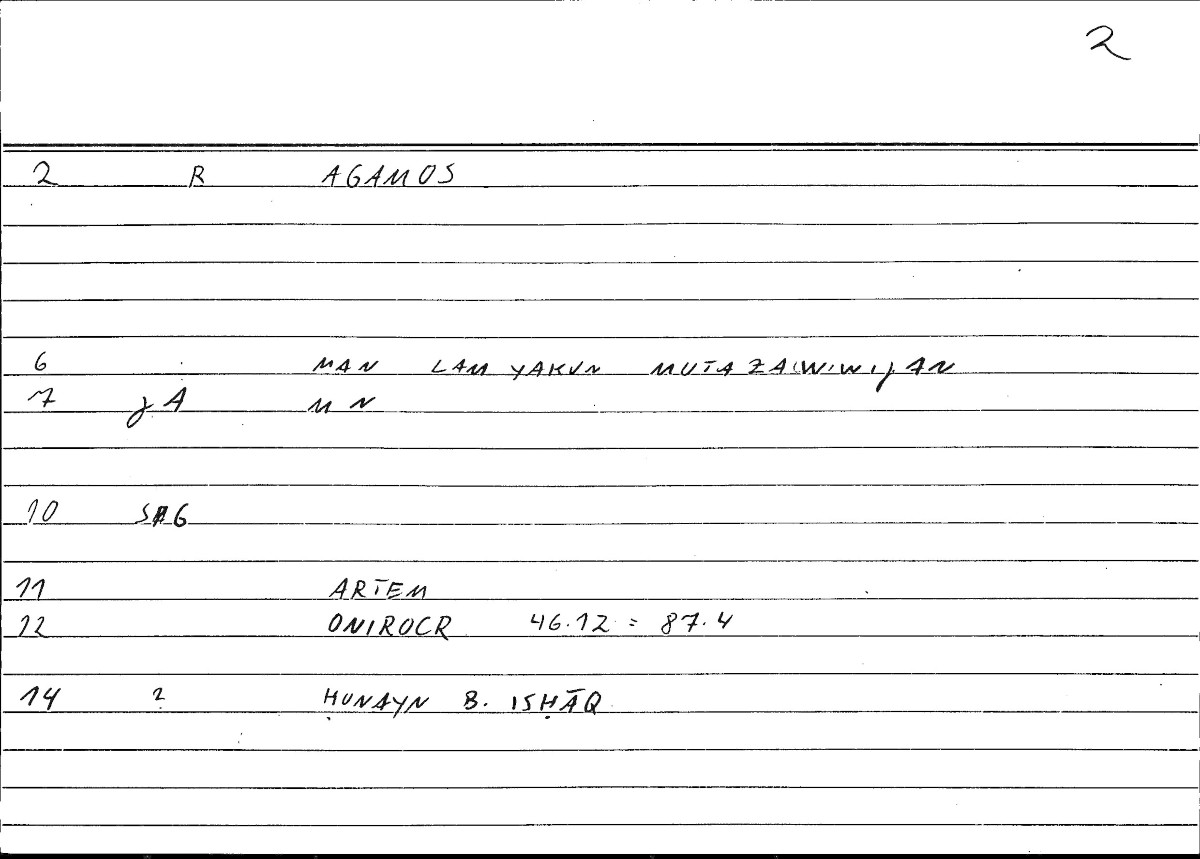 2
2 R AGAMOS
6 MAN LAM YAKUN MUTAZA(W.W.)JAN
7 JA MN
10 SAG
11 ARTEM
12 ONIROCR 46.12 = 87.4
14 ? ḤUNAYN B. ISḤĀQ